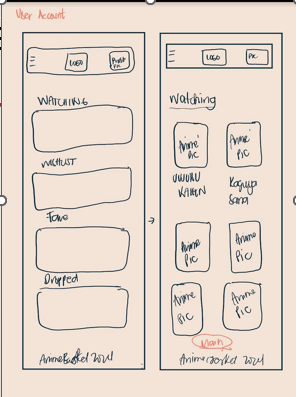 User Account
LOGO
Profile
Pic
WATCHING
WISHLIST
Favs
Dropped
AnimeBasket 2024
LOGO
Pic
Watching
Anime
Pic
Anime
Pic
JUJUTSU
KAISEN
Kaguya
Sama
Anime
Pic
Anime
Pic
Anime
Pic
Anime
Pic
AnimeBasket 2024